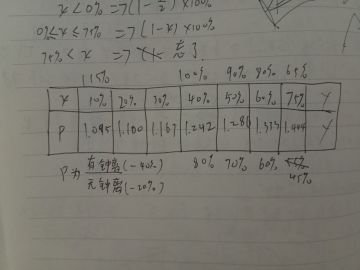 x<0% =7(1-x/2)×100%
0%≤x≤75% =7(1-x)×100%
75%<x =7
115% 100% 90% 80% 65%
x 10% 20% 30% 40% 50% 60% 75% y
P 1.095 1.100 1.167 1.242 1.286 1.333 1.444 y
P为 有钟离(-40%) 80% 70% 60% 55%
无钟离(-20%) 45%